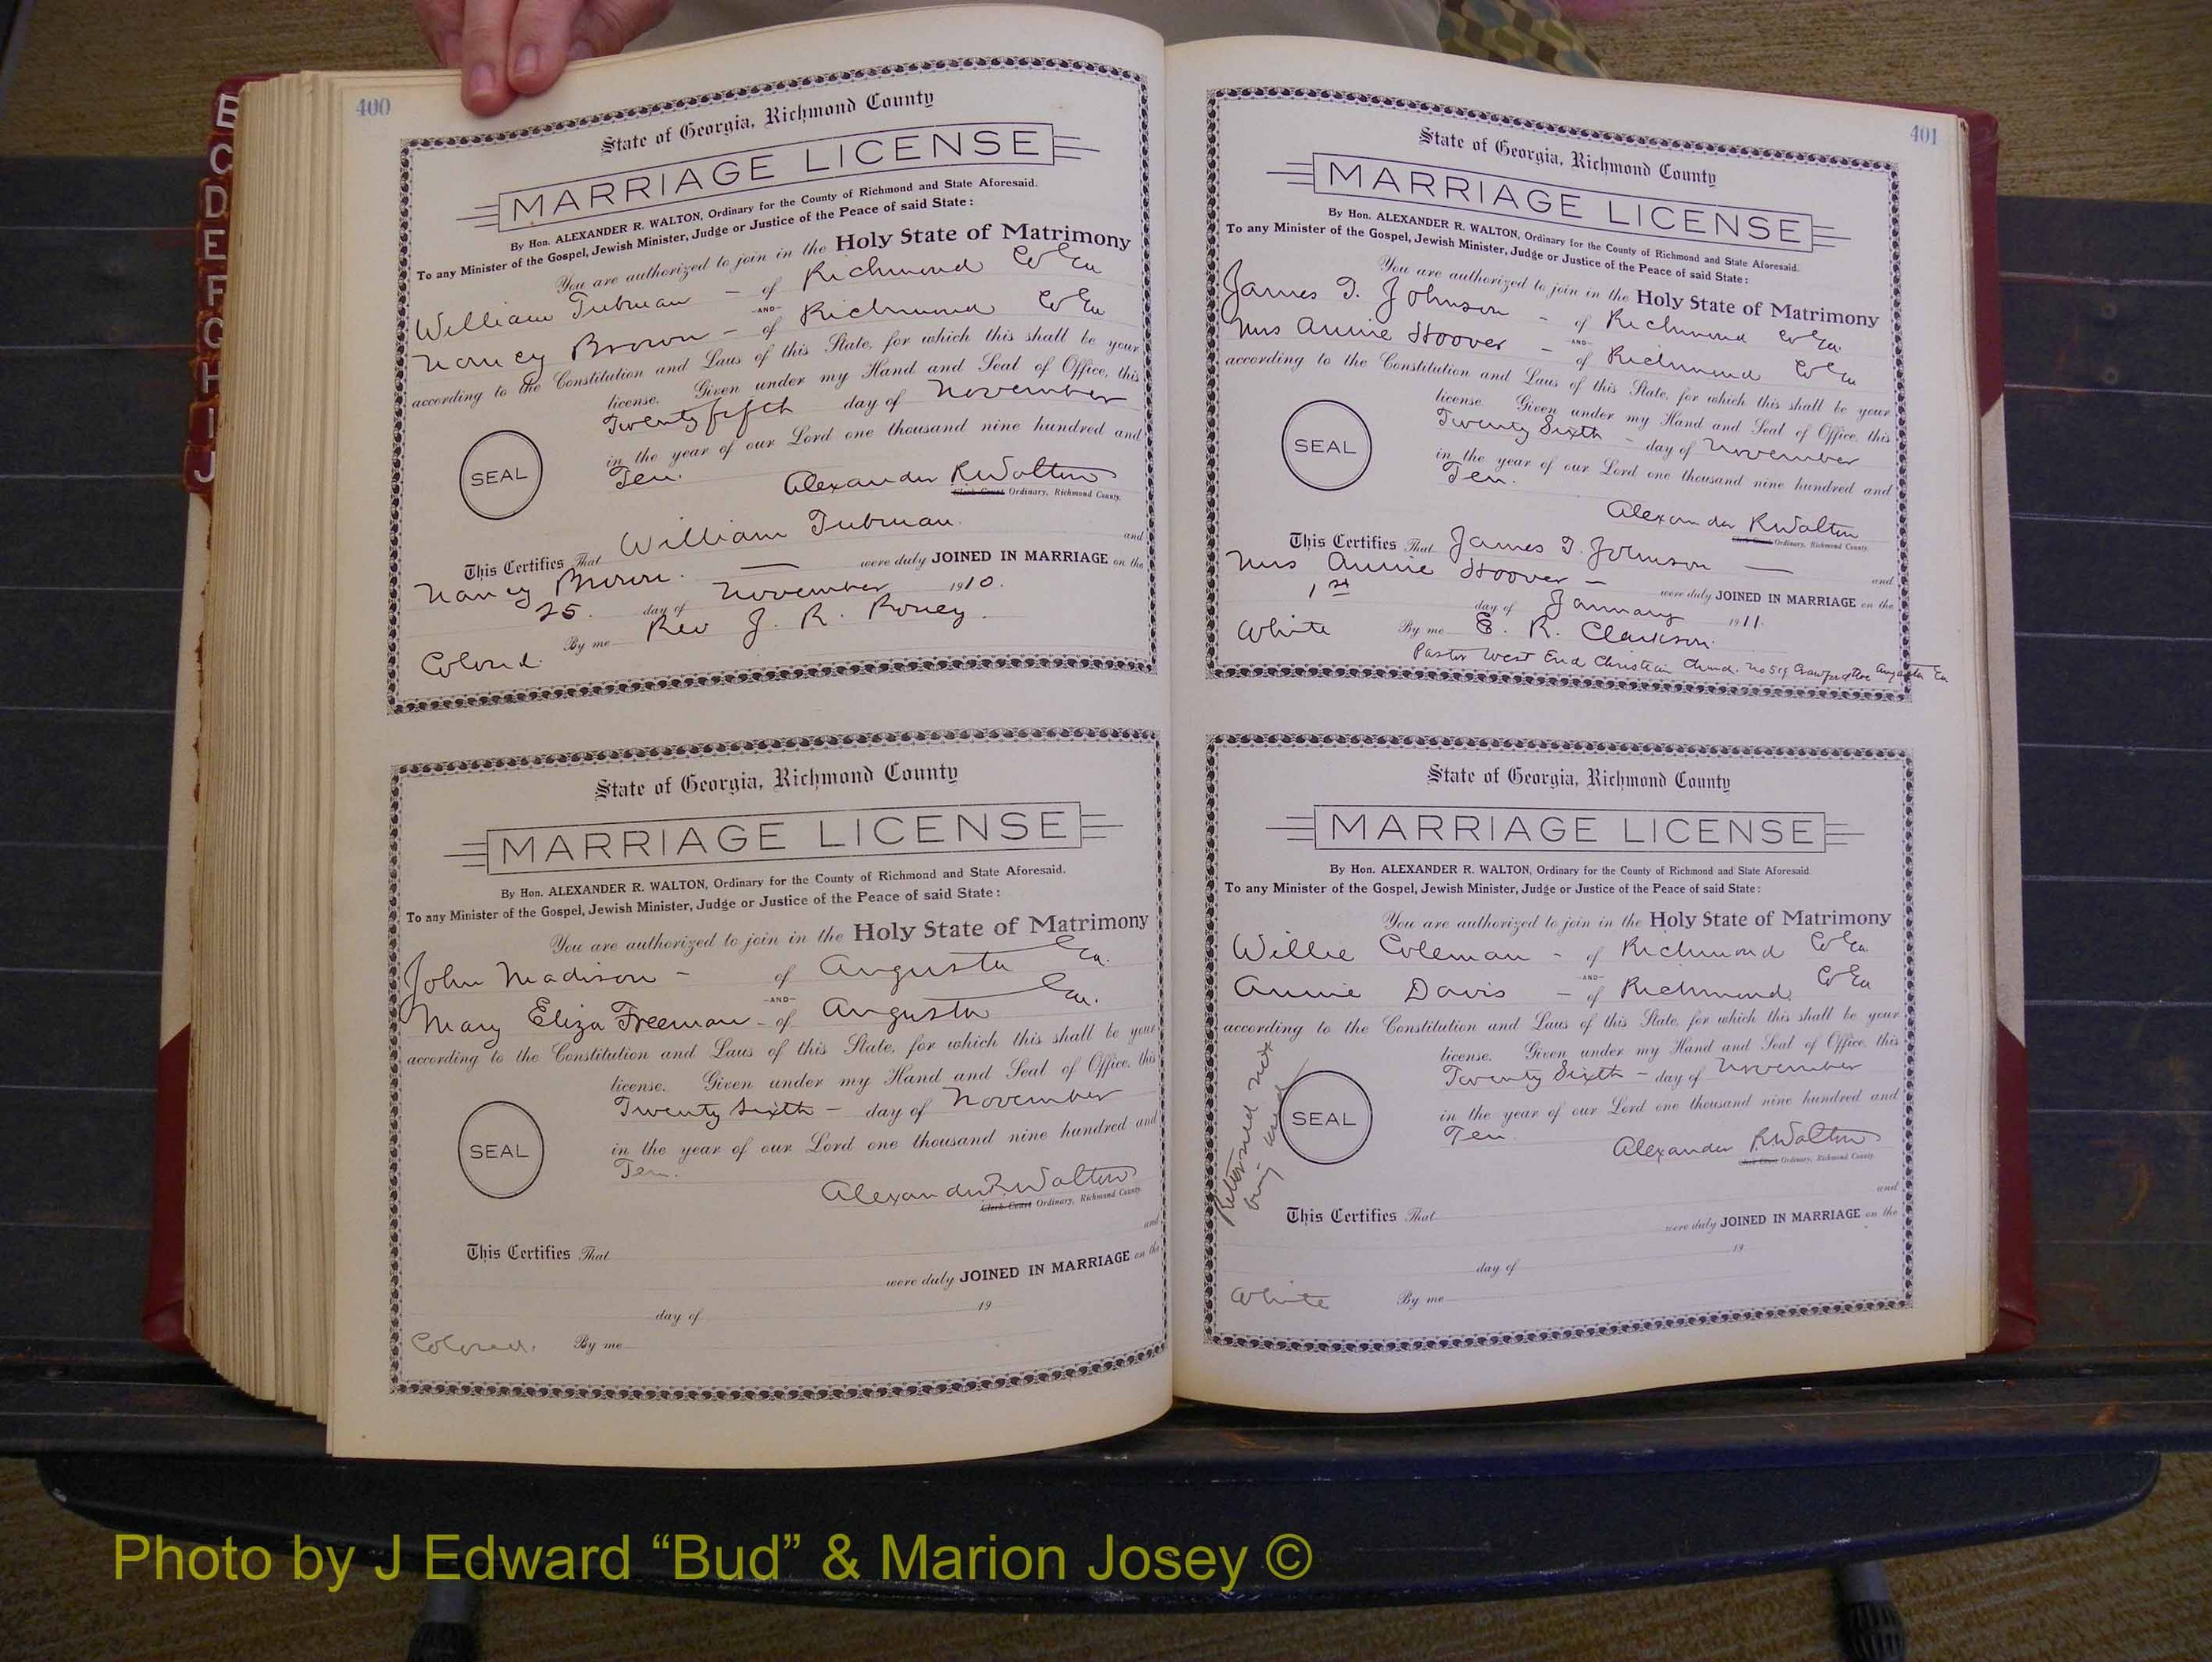 B
C
D
E
F
G
H
I
J
400
State of Georgia, Richmond County
MARRIAGE LICENSE
By Hon. ALEXANDER R. WALTON, Ordinary for the County of Richmond and State Aforesaid.
To any Minister of the Gospel, Jewish Minister, Judge or Justice of the Peace of said State:
You are authorized to join in the Holy State of Matrimony
William Tubman - of Richmond Co Ga
-AND-
Nancy Brown - of Richmond Co Ga
according to the Constitution and Laws of this State, for which this shall be your
license. Given under my Hand and Seal of Office, this
Twenty fifth day of November
in the year of our Lord one thousand nine hundred and
Ten.
SEAL
Alexander R Walton
Clerk Court Ordinary, Richmond County.
This Certifies That William Tubman and
Nancy Brown. were duly JOINED IN MARRIAGE on the
25. day of November 1910.
Colored. By me Rev J. R. Roney.
State of Georgia, Richmond County
MARRIAGE LICENSE
By Hon. ALEXANDER R. WALTON, Ordinary for the County of Richmond and State Aforesaid.
To any Minister of the Gospel, Jewish Minister, Judge or Justice of the Peace of said State:
You are authorized to join in the Holy State of Matrimony
John Madison - of Augusta Ga.
-AND-
Mary Eliza Freeman - of Augusta Ga.
according to the Constitution and Laws of this State, for which this shall be your
license. Given under my Hand and Seal of Office, this
Twenty sixth - day of November
in the year of our Lord one thousand nine hundred and
Ten.
SEAL
Alexander R. Walton
Clerk Court Ordinary, Richmond County
This Certifies That and
were duly JOINED IN MARRIAGE on the
day of 19
Colored. By me
401
State of Georgia, Richmond County
MARRIAGE LICENSE
By Hon. ALEXANDER R. WALTON, Ordinary for the County of Richmond and State Aforesaid.
To any Minister of the Gospel, Jewish Minister, Judge or Justice of the Peace of said State:
You are authorized to join in the Holy State of Matrimony
James T. Johnson - of Richmond Co Ga.
-AND-
Mrs Annie Hoover - of Richmond Co Ga
according to the Constitution and Laws of this State, for which this shall be your
license. Given under my Hand and Seal of Office, this
Twenty Sixth - day of November
in the year of our Lord one thousand nine hundred and
Ten.
SEAL
Alexander R Walton
Clerk Court Ordinary, Richmond County.
This Certifies That James T. Johnson - and
Mrs Annie Hoover - were duly JOINED IN MARRIAGE on the
1st day of January 1911.
White By me E. R. Clarkson.
Pastor West End Christian Church. No 519 Crawford Ave Augusta Ga
State of Georgia, Richmond County
MARRIAGE LICENSE
By Hon. ALEXANDER R. WALTON, Ordinary for the County of Richmond and State Aforesaid.
To any Minister of the Gospel, Jewish Minister, Judge or Justice of the Peace of said State:
You are authorized to join in the Holy State of Matrimony
Willie Coleman - of Richmond Co Ga
-AND-
Annie Davis - of Richmond Co Ga
according to the Constitution and Laws of this State, for which this shall be your
license. Given under my Hand and Seal of Office, this
Twenty Sixth - day of November
in the year of our Lord one thousand nine hundred and
Ten.
SEAL
Returned not
being used
Alexander R Walton
Clerk Court Ordinary, Richmond County.
This Certifies That and
were duly JOINED IN MARRIAGE on the
day of 19
White By me
Photo by J Edward “Bud” & Marion Josey ©